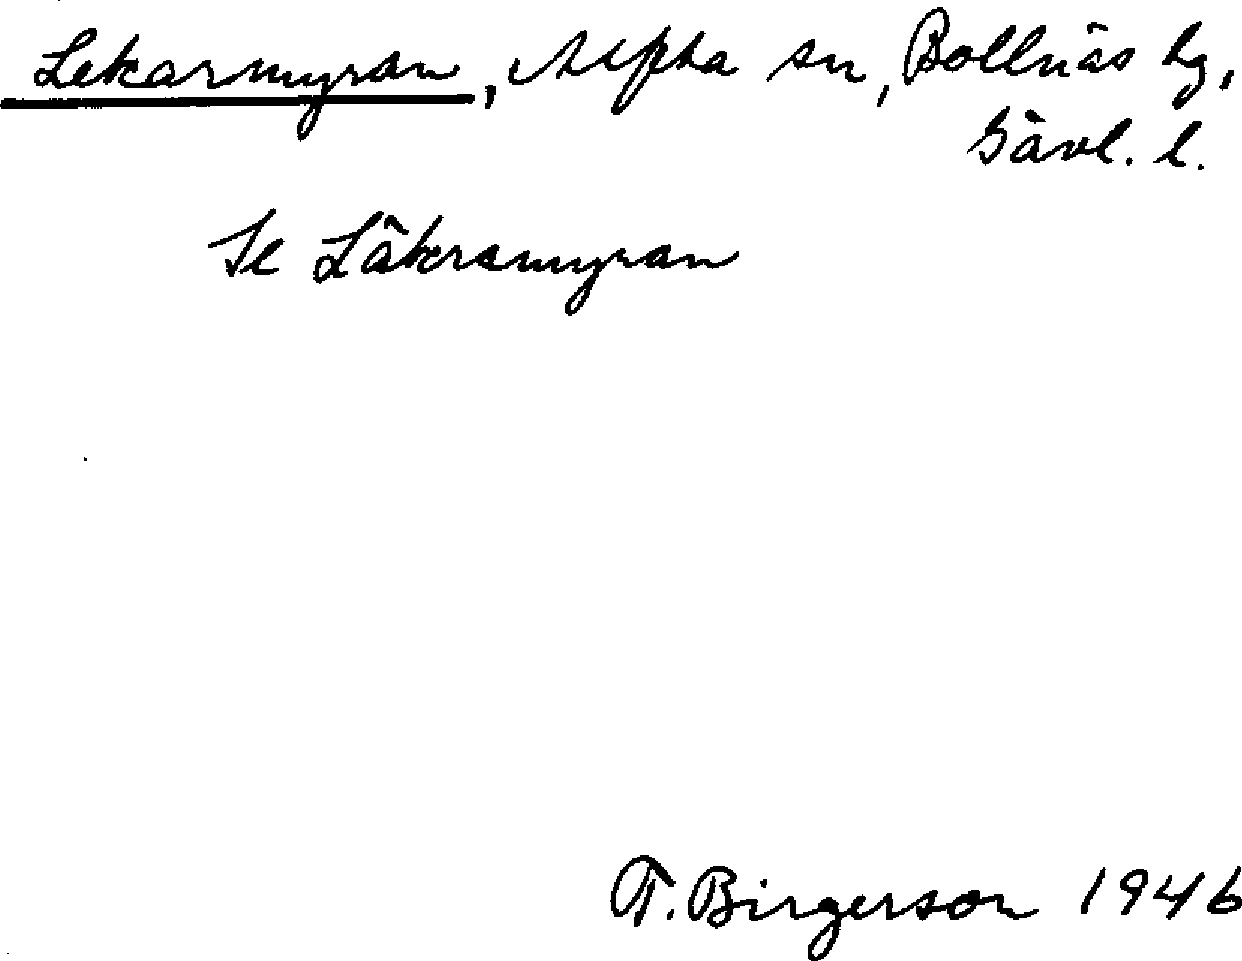 Lekarmyran, Alfta sn, Bollnäs hg,
Gävl. l.
Se Läkersmyran
T. Birgerson 1946